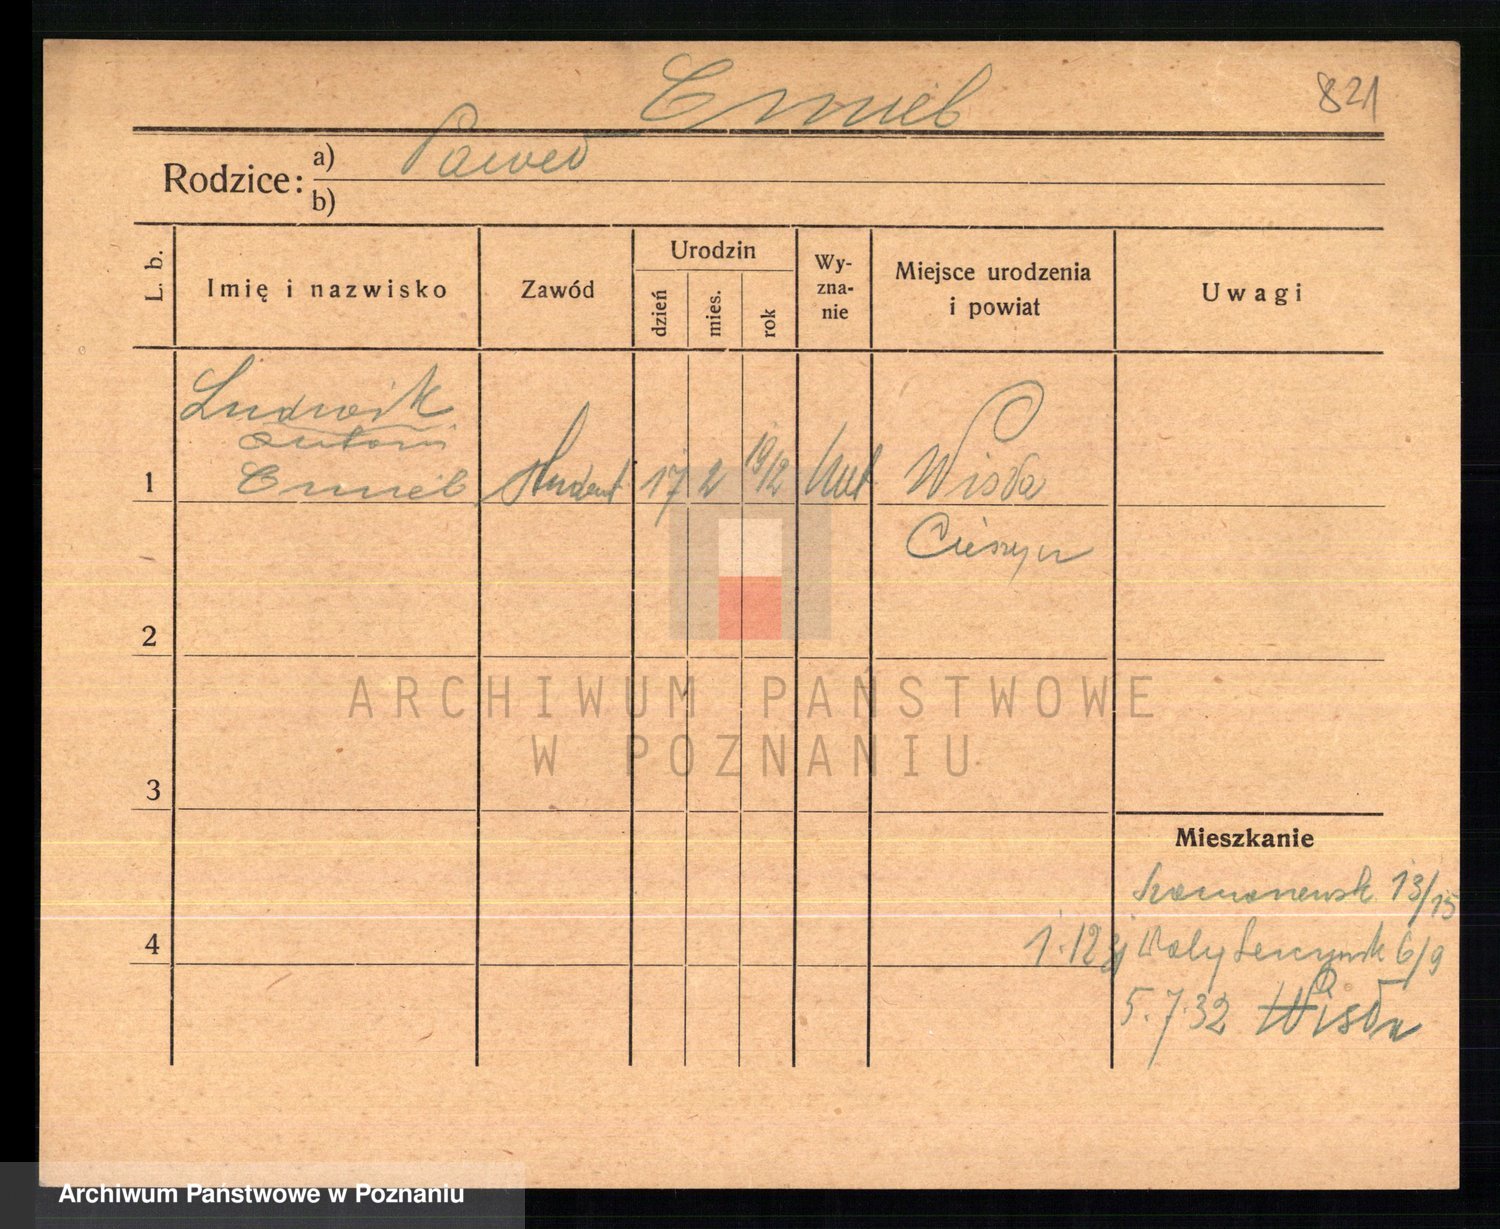 Cmiel
821
Rodzice: a) Paweł
b)
L. b.
Imię i nazwisko
Zawód
Urodzin
dzień
mies.
rok
Wy-
zna-
nie
Miejsce urodzenia
i powiat
Uwagi
Ludwik
Antoni
Cmiel
1
student
17
2
1912
Wisła
Cieszyn
2
ARCHIWUM PAŃSTWOWE
W POZNANIU
3
Mieszkanie
13/15
4
1.12 31 Wały 6/9
5.7.32 Wisła
Archiwum Państwowe w Poznaniu